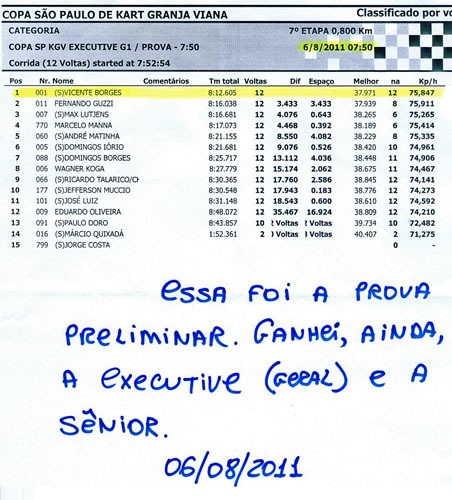 COPA SÃO PAULO DE KART GRANJA VIANA Classificado por vo
CATEGORIA 7º ETAPA 0,800 Km
COPA SP KGV EXECUTIVE G1 / PROVA - 7:50 6/8/2011 07:50
Corrida (12 Voltas) started at 7:52:54
Pos Nr. Nome Comentários Tm total Voltas Dif Espaço Melhor na Kp/h
1 001 (S)VICENTE BORGES 8:12.605 12 37.971 12 75,847
2 011 FERNANDO GUZZI 8:16.038 12 3.433 3.433 37.939 8 75,911
3 007 (S)MAX LUTJENS 8:16.681 12 4.076 0.643 38.265 6 75,265
4 770 MARCELO MANNA 8:17.073 12 4.468 0.392 38.189 6 75,414
5 060 (S)ANDRÉ MATINHA 8:21.155 12 8.550 4.082 38.229 8 75,335
6 005 (S)DOMINGOS IÓRIO 8:21.681 12 9.076 0.526 38.420 10 74,961
7 088 (S)DOMINGOS BORGES 8:25.717 12 13.112 4.036 38.448 11 74,906
8 006 WAGNER KOGA 8:27.779 12 15.174 2.062 38.675 11 74,467
9 066 (S)RICARDO TALARICO/CH 8:30.365 12 17.760 2.586 38.845 12 74,141
10 177 (S)JEFFERSON MUCCIO 8:30.548 12 17.943 0.183 38.776 12 74,273
11 101 (S)JOSÉ LUIZ 8:31.148 12 18.543 0.600 38.610 12 74,592
12 009 EDUARDO OLIVEIRA 8:48.072 12 35.467 16.924 38.809 12 74,210
13 091 (S)PAULO DORO 8:43.857 10 Voltas Voltas 39.734 10 72,482
14 016 (S)MÁRCIO QUIXADÁ 1:52.361 2 Voltas Voltas 40.407 2 71,275
15 799 (S)JORGE COSTA 0 -
ESSA FOI A PROVA
PRELIMINAR. GANHEI, AINDA,
A EXECUTIVE (GERAL) E A
SÊNIOR.
06/08/2011